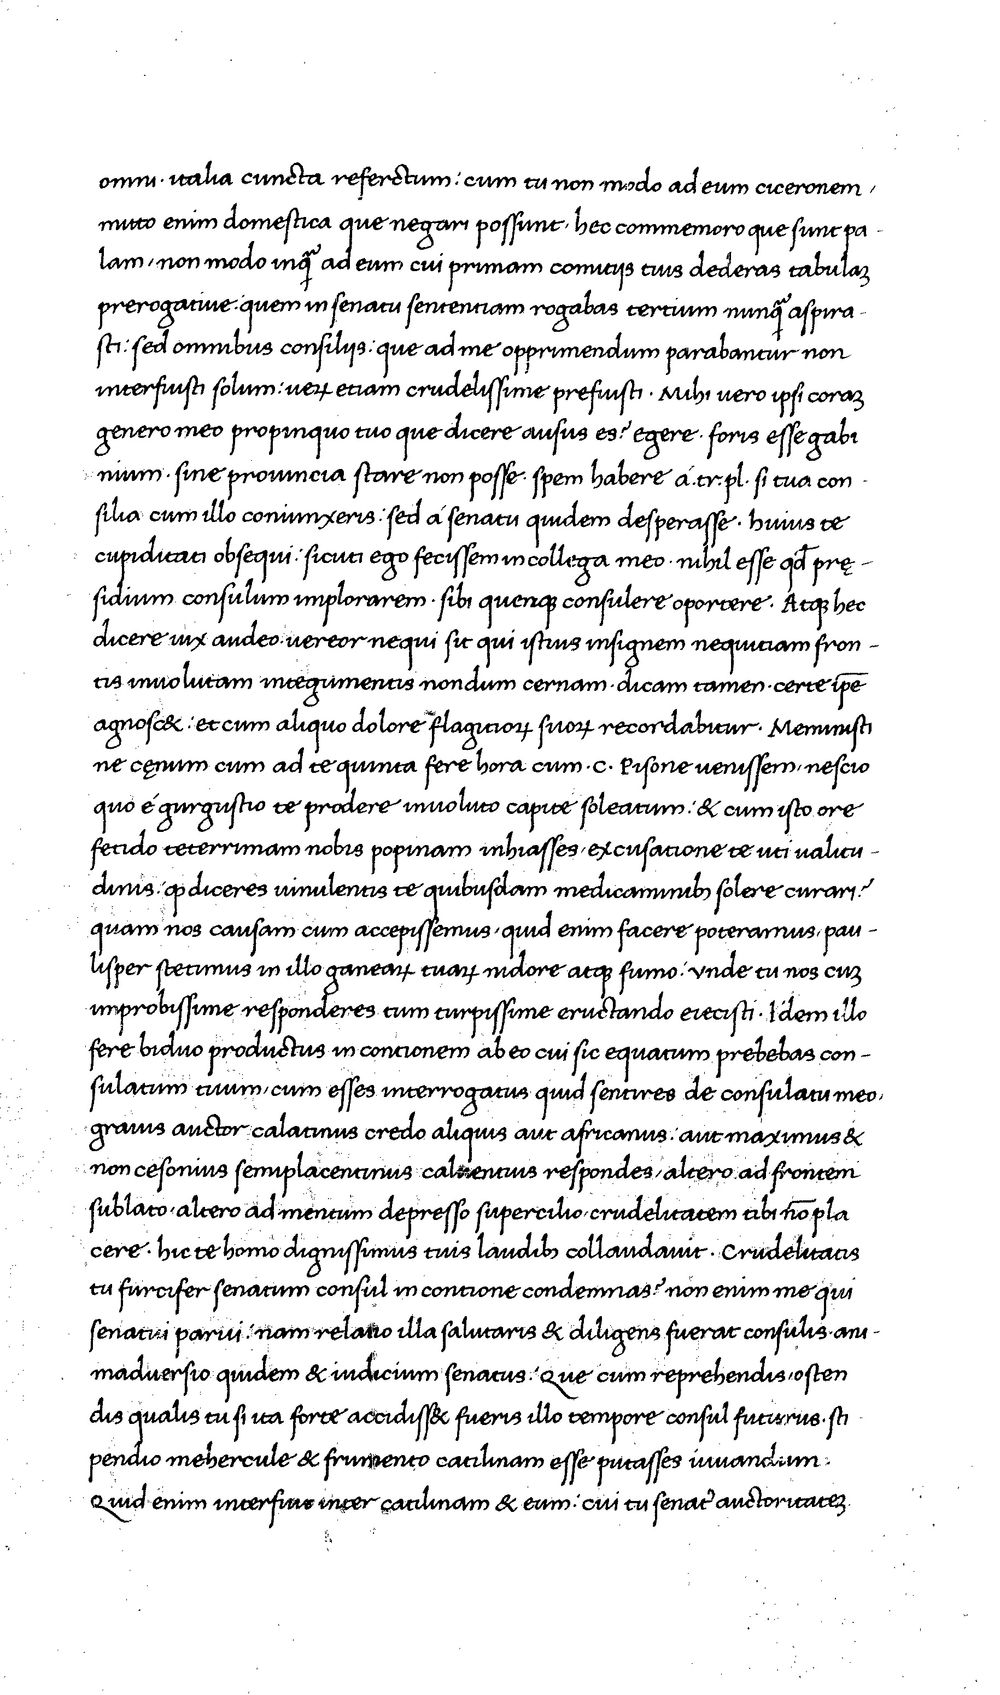 omni · italia cuncta refertum : cum tu non modo ad eum ciceronem /
mitto enim domestica que negari possunt · hec commemoro que sunt pa -
lam / non modo inqᷓ ad eum cui primam comitijs tuis dederas tabulaꝫ
prerogatiue : quem in senatu sententiam rogabas tertium nunqᷓ aspira -
sti : sed omnibus consilijs : que ad me opprimendum parabantur non
interfuisti solum : ueꝝ etiam crudelissime prefuisti · Mihi uero ipsi coraꝫ
genero meo propinquo tuo que dicere ausus es ? egere · foris esse gabi
nium · sine prouincia stare non posse · spem habere á · tr · pl · si tua con -
silia cum illo coniunxeris : sed á senatu quidem desperasse · huius te
cupiditati obsequi : sicuti ego fecissem in collega meo · nihil esse qđ prę -
sidium consulum implorarem · sibi quenqꝫ consulere oportere · Atqꝫ hec
dicere uix audeo · uereor nequi sit qui istius insignem nequitiam fron -
tis inuolutam integumentis nondum cernam · dicam tamen · certe ip̅e
agnosc& : et cum aliquo dolore flagitioꝝ suoꝝ recordabitur · Meministi
ne cęnum cum ad te quinta fere hora cum · C · Pisone uenissem / nescio
quo é gurgustio te prodere inuoluto capite soleatum : & cum isto ore
fetido teterrimam nobis popinam inhiasses / excusatione te uti ualitu -
dinis : ꝙ diceres uinulentis te quibusdam medicaminibꝫ solere curari ?
quam nos causam cum accepissemus / quid enim facere poteramus / pau -
lisper stetimus in illo ganeaꝝ tuaꝝ nidore atqꝫ fumo : vnde tu nos cuꝫ
improbissime responderes tum turpissime eructando eiecisti · Idem illo
fere biduo productus in contionem ab eo cui sic equatum prebebas con -
sulatum tuum / cum esses interrogatus quid sentires de consulatu meo /
grauis auctor calatinus credo aliquis aut africanus : aut maximus &
non cesonius semiplacentinus caluentius respondes / altero ad frontem
sublato / altero ad mentum depresso supercilio / crudelitatem tibi n̅o pla
cere · hic te homo dignissimus tuis laudibꝫ collaudauit · Crudelitatis
tu furcifer senatum consul in contione condemnas ? non enim me qui
senatui parui : nam relatio illa salutaris & diligens fuerat consulis · ani -
maduersio quidem & iudicium senatus : Que cum reprehendis / osten
dis qualis tu si ita forte accidiss& fueris illo tempore consul futurus · sti
pendio mehercule & frumento catilinam esse putasses iuuandum :
Quid enim interfuit inter catilinam & eum : cui tu senat᾿ auctoritateꝫ